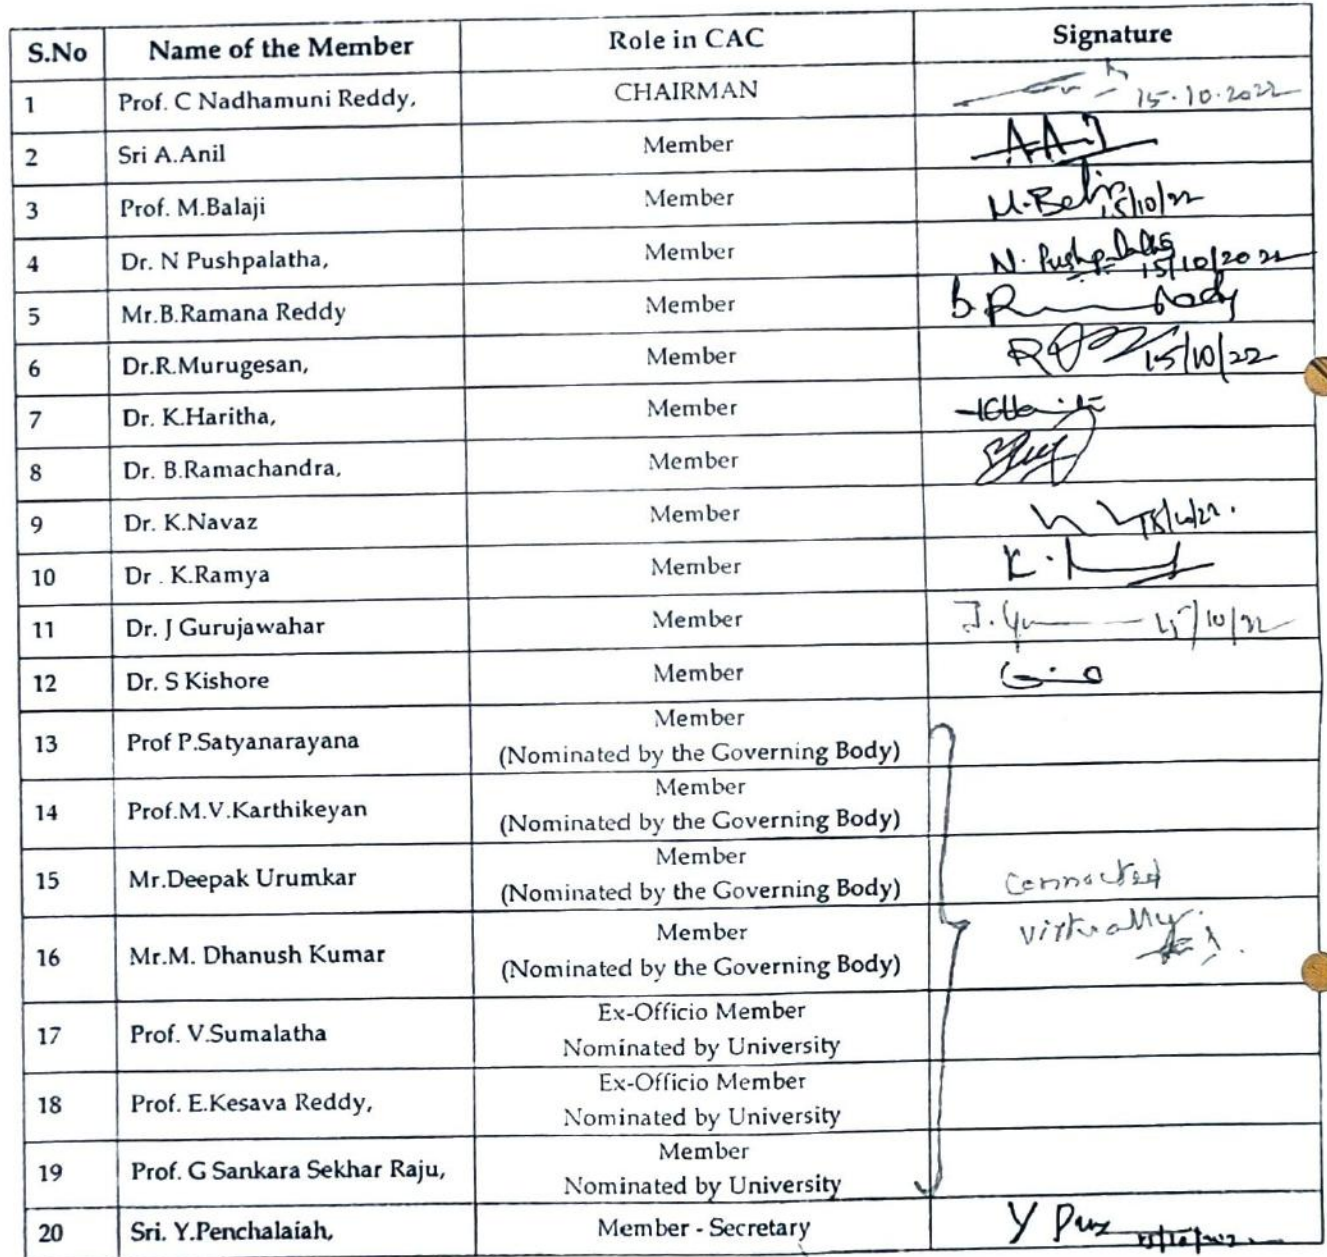 S.No Name of the Member Role in CAC Signature
1 Prof. C Nadhamuni Reddy, CHAIRMAN 15.10.2022
2 Sri A.Anil Member
3 Prof. M.Balaji Member 15/10/22
4 Dr. N Pushpalatha, Member N. Pushpalatha 15/10/2022
5 Mr.B.Ramana Reddy Member
6 Dr.R.Murugesan, Member 15/10/22
7 Dr. K.Haritha, Member
8 Dr. B.Ramachandra, Member
9 Dr. K.Navaz Member
10 Dr . K.Ramya Member
11 Dr. J Gurujawahar Member 15/10/22
12 Dr. S Kishore Member
13 Prof P.Satyanarayana Member
(Nominated by the Governing Body)
14 Prof.M.V.Karthikeyan Member
(Nominated by the Governing Body)
15 Mr.Deepak Urumkar Member
(Nominated by the Governing Body)
connected
16 Mr.M. Dhanush Kumar Member
(Nominated by the Governing Body)
virtually.
17 Prof. V.Sumalatha Ex-Officio Member
Nominated by University
18 Prof. E.Kesava Reddy, Ex-Officio Member
Nominated by University
19 Prof. G Sankara Sekhar Raju, Member
Nominated by University
20 Sri. Y.Penchalaiah, Member - Secretary